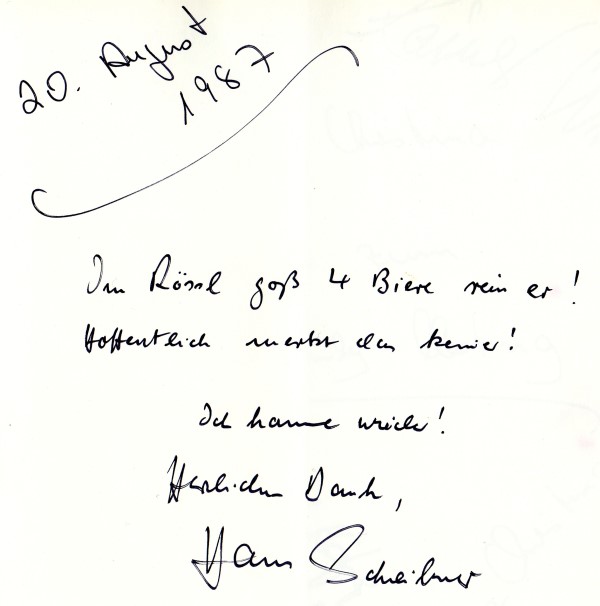 20. August
1987
Im Rössl goß 4 Biere rein er!
Hoffentlich merkt das keiner!
Ich komme wieder!
Herzlichen Dank,
Hans Scheibner